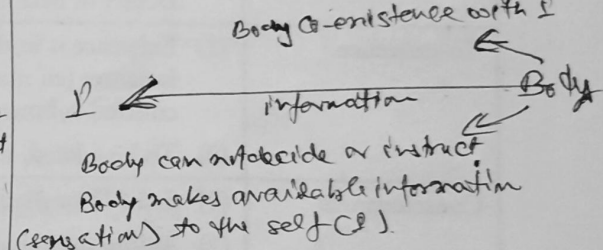 Body Co-existence with I
I
Body
information
Body can notdecide or instruct
Body makes available information
(sensation) to the self (I).